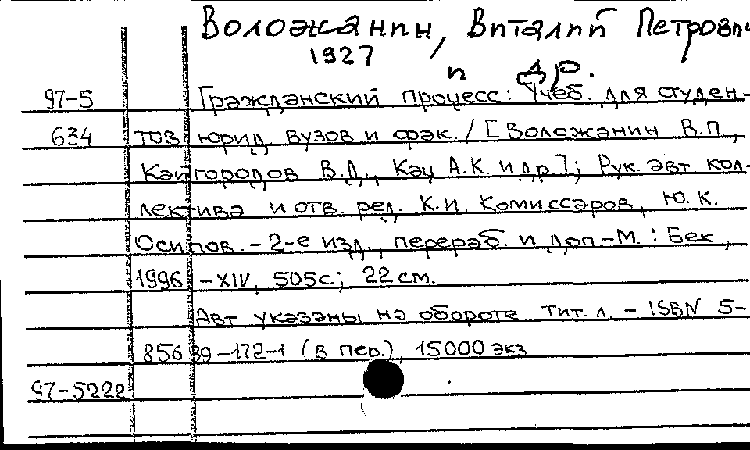 Воложанин, Виталий Петрович
1927
и др.
97-5 Гражданский процесс: Учеб. для студен-
634 тов юрид. вузов и фак. / [Воложанин В.П.,
Кайгородов В.Д., Кац А.К. и др.]; Рук. авт кол-
лектива и отв. ред. К.И. Комиссаров, Ю.К.
Осипов. - 2-е изд., перераб. и доп. - М.: Бек,
1996 - XIV, 505 с.; 22 см.
Авт указаны на обороте тит. л. - ISBN 5-
85639-172-1 (в пер.), 15000 экз
97-5222